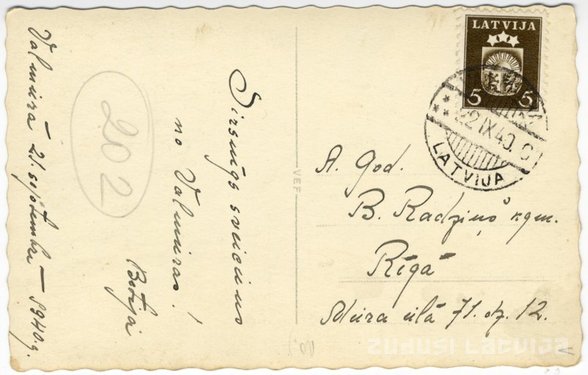 Valmierā 21. septembrī - 1940.g.
202
Sirsnīgs sveiciens
no Valmieras!
LATVIJA
5 5
22 IX 40
LATVIJA
VEF
A. God.
B. Radziņš kgm.
Rīgā
Mūra ielā 71. dz. 12.
ZUDUSI LATVIJA